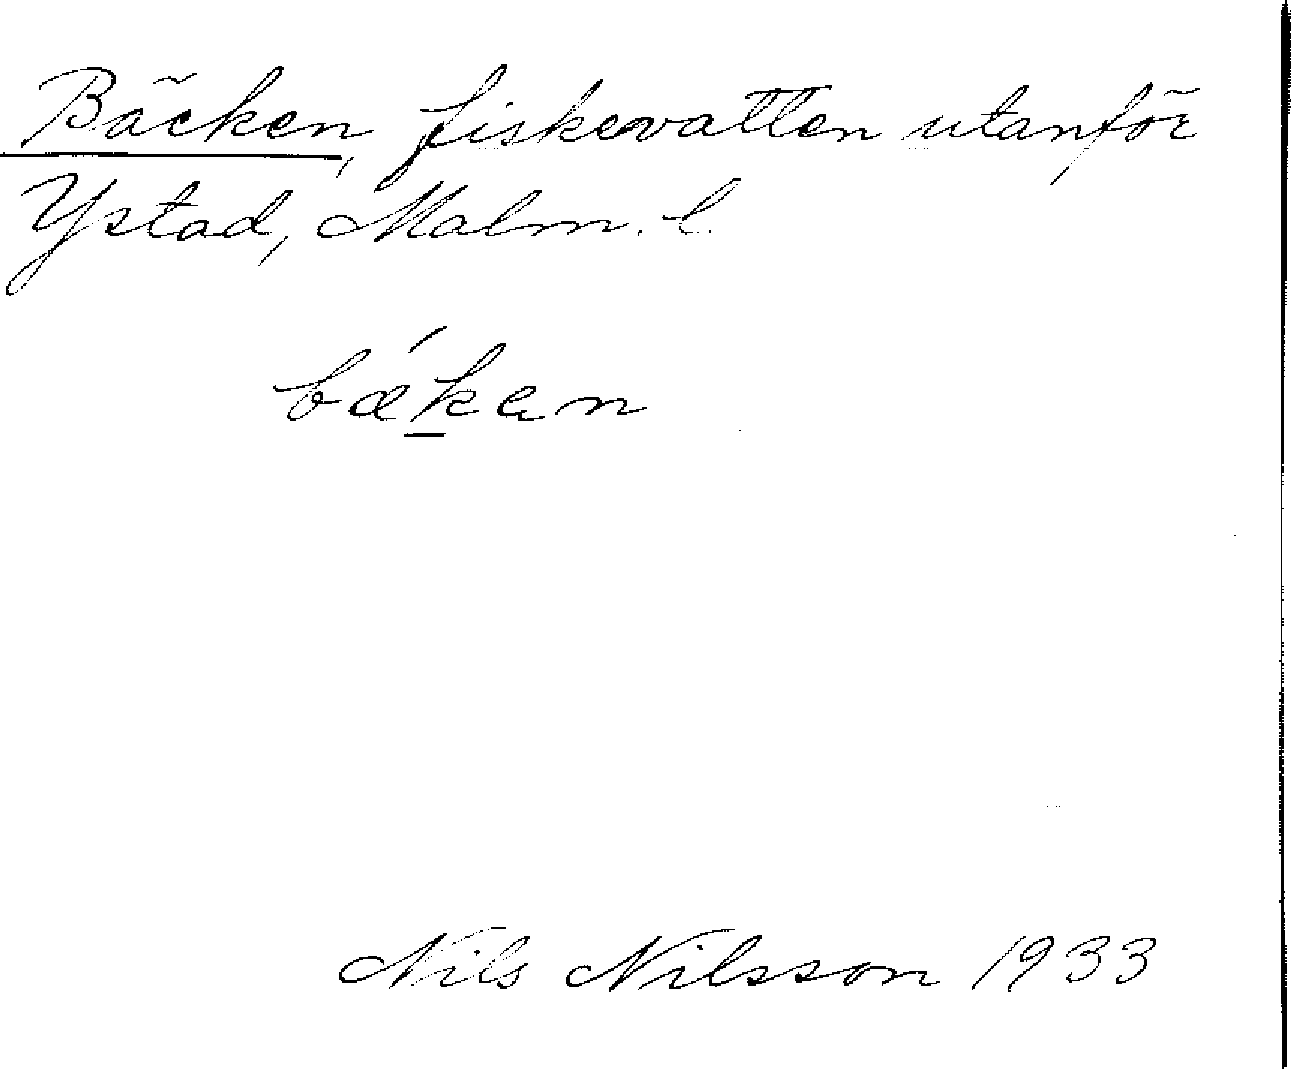 Bäcken, fiskevatten utanför
Ystad, Malm. l.
bæ´kan
Nils Nilsson 1933